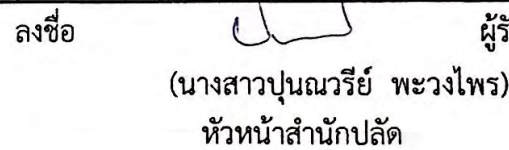 ลงชื่อ ผู้รั
(นางสาวปุนณวรีย์ พะวงไพร)
หัวหน้าสำนักปลัด